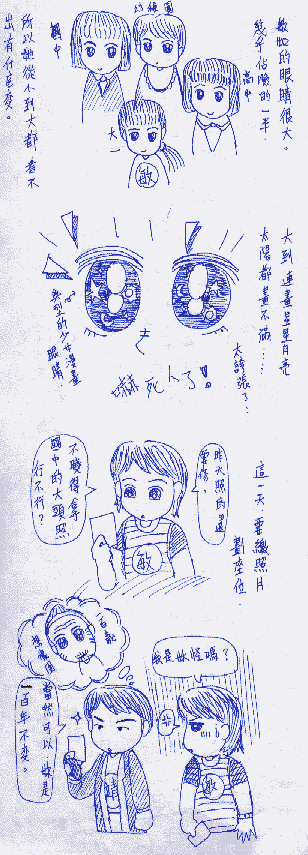 敏如的眼睛很大。
幾乎佔臉的一半，
所以她從小到大都看不
出有什麼變。
幼稚園
國中
高中
大一
敏
大到連畫星星月亮
太陽都畫不滿……
太誇張了…
典型的少女漫畫
眼睛。
嚇死人了！
這一天，要繳照片
劃座位。
昨天照的還
不曉得拿
國中的大頭照
行不行？
敏
我是妖怪嗎？
敏
百歲
想像圖
當然可以，妳是
一百年不變。